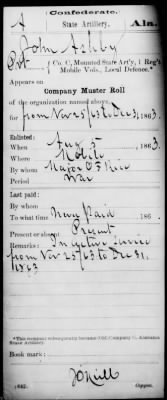 Confederate.
A State Artillery. Ala.
John Ashby
Pvt., Co. C, Mounted State Art'y, 1 Reg't
Mobile Vols., Local Defence.*
Appears on
Company Muster Roll
of the organization named above,
for from Nov 25/63 to Dec 31, 1863.
Enlisted:
When Aug 5, 1863.
Where Mobile
By whom Major C S
Period War
Last paid:
By whom
To what time Never Paid, 186
Present or absent Present
Remarks: In active service
from Nov 25/63 to Dec 31,
1863
*This company subsequently became Old Company C, Alabama
State Artillery.
Book mark:
(642) Copyist.